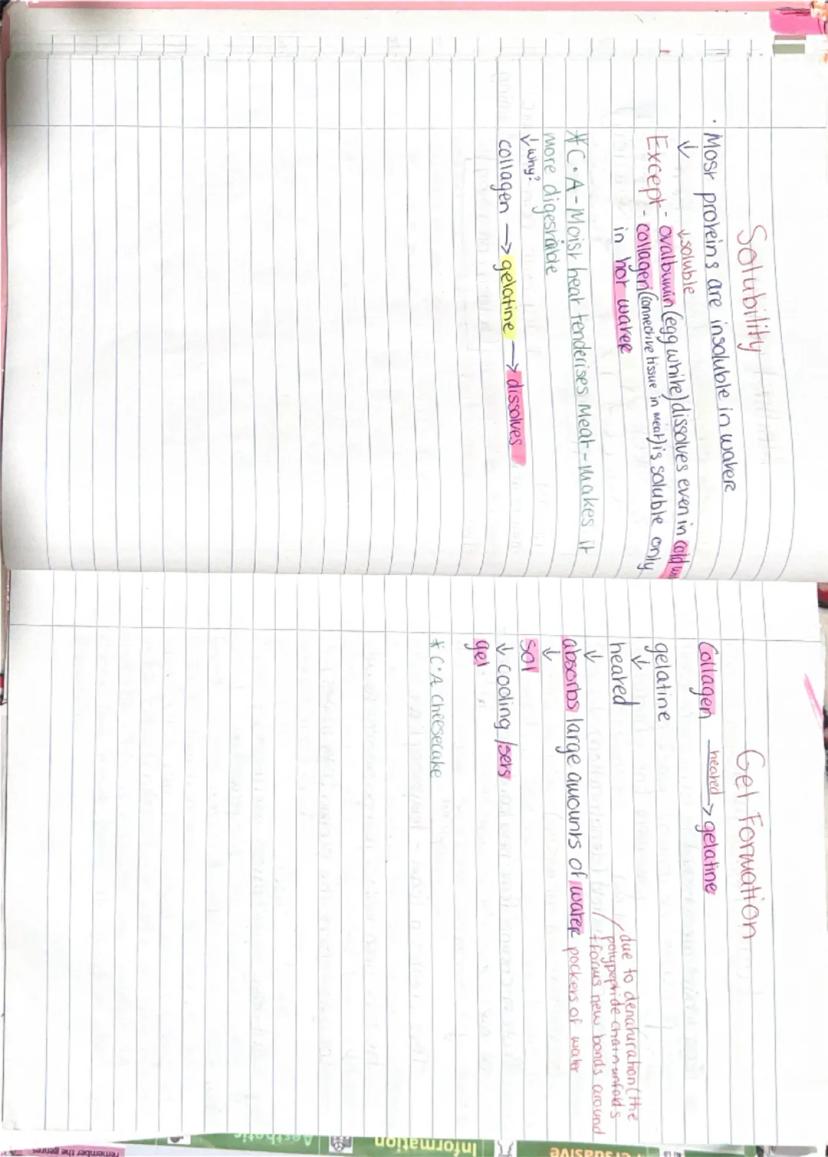 Solubility
· Most proteins are insoluble in watere
↓ ↓soluble
Except - ovalbumin (egg white) dissolves even in cold
- collagen (connective tissue in meat) is soluble only
in hot water
*C.A - Moist heat tenderises Meat - makes it
more digestible
↓ why?
collagen → gelatine → dissolves
Gel Formation
Collagen heated→ gelatine
gelatine
↓
heated
↓
absorbs large amounts of water
due to denaturation (the
polypeptide chain unfolds
+ forms new bonds around
pockets of water
↓
sol
↓ cooling / sets
gel
* C.A Cheesecake
Persuasive
Information
Aesthetic
remember the genres